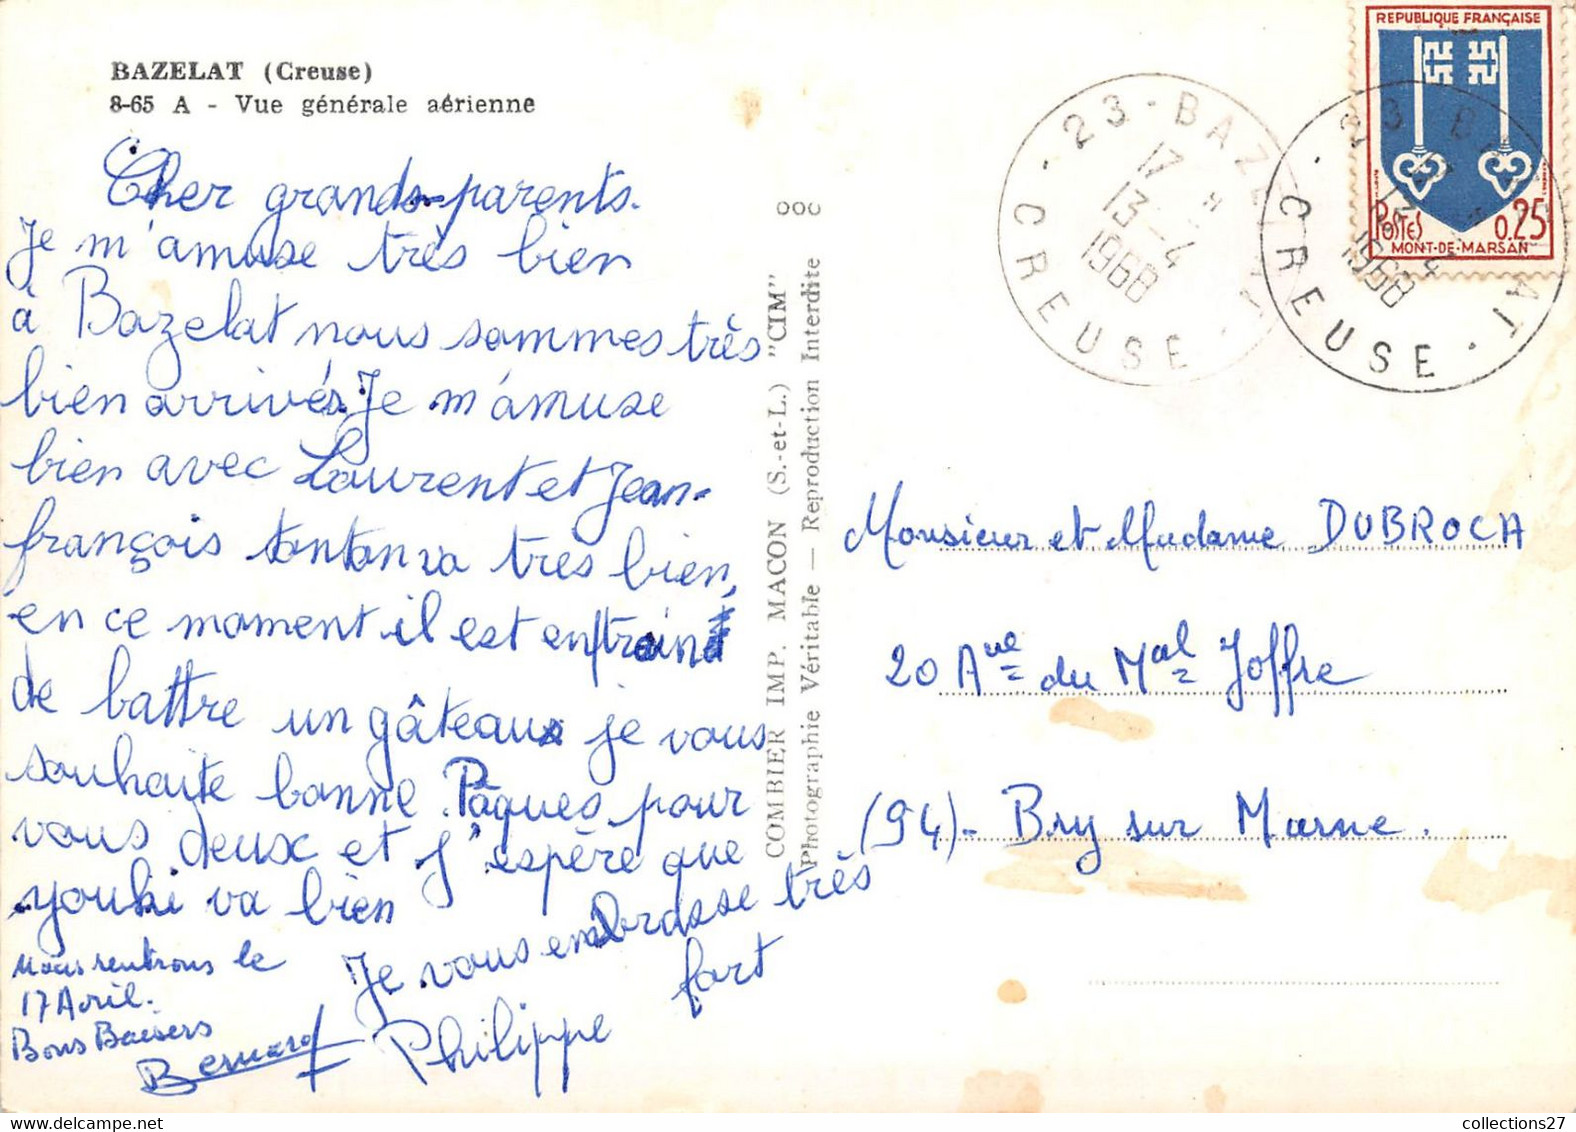 BAZELAT (Creuse)
8-65 A - Vue générale aérienne
Cher grands-parents.
Je m'amuse très bien
à Bazelat nous sommes très
bien arrivés. Je m'amuse
bien avec Laurent et Jean-
françois tonton va très bien,
en ce moment il est entrain
de battre un gâteau je vous
souhaite bonne Pâques pour
vous deux et j'espère que
youki va bien
Je vous embrasse très
fort
Philippe
Nous rentrons le
17 Avril.
Bons Baisers
Bernard
COMBIER IMP. MACON (S.-et-L.) "CIM"
Photographie Véritable — Reproduction Interdite
REPUBLIQUE FRANÇAISE
POSTES 0.25
MONT-DE-MARSAN
23 - BAZELAT
CREUSE
17 H
13 - 4
1968
23 BAZELAT
CREUSE
17 H
13 - 4
1968
Monsieur et Madame DUBROCA
20 Ave du Mal Joffre
(94) - Bry sur Marne.
collections27